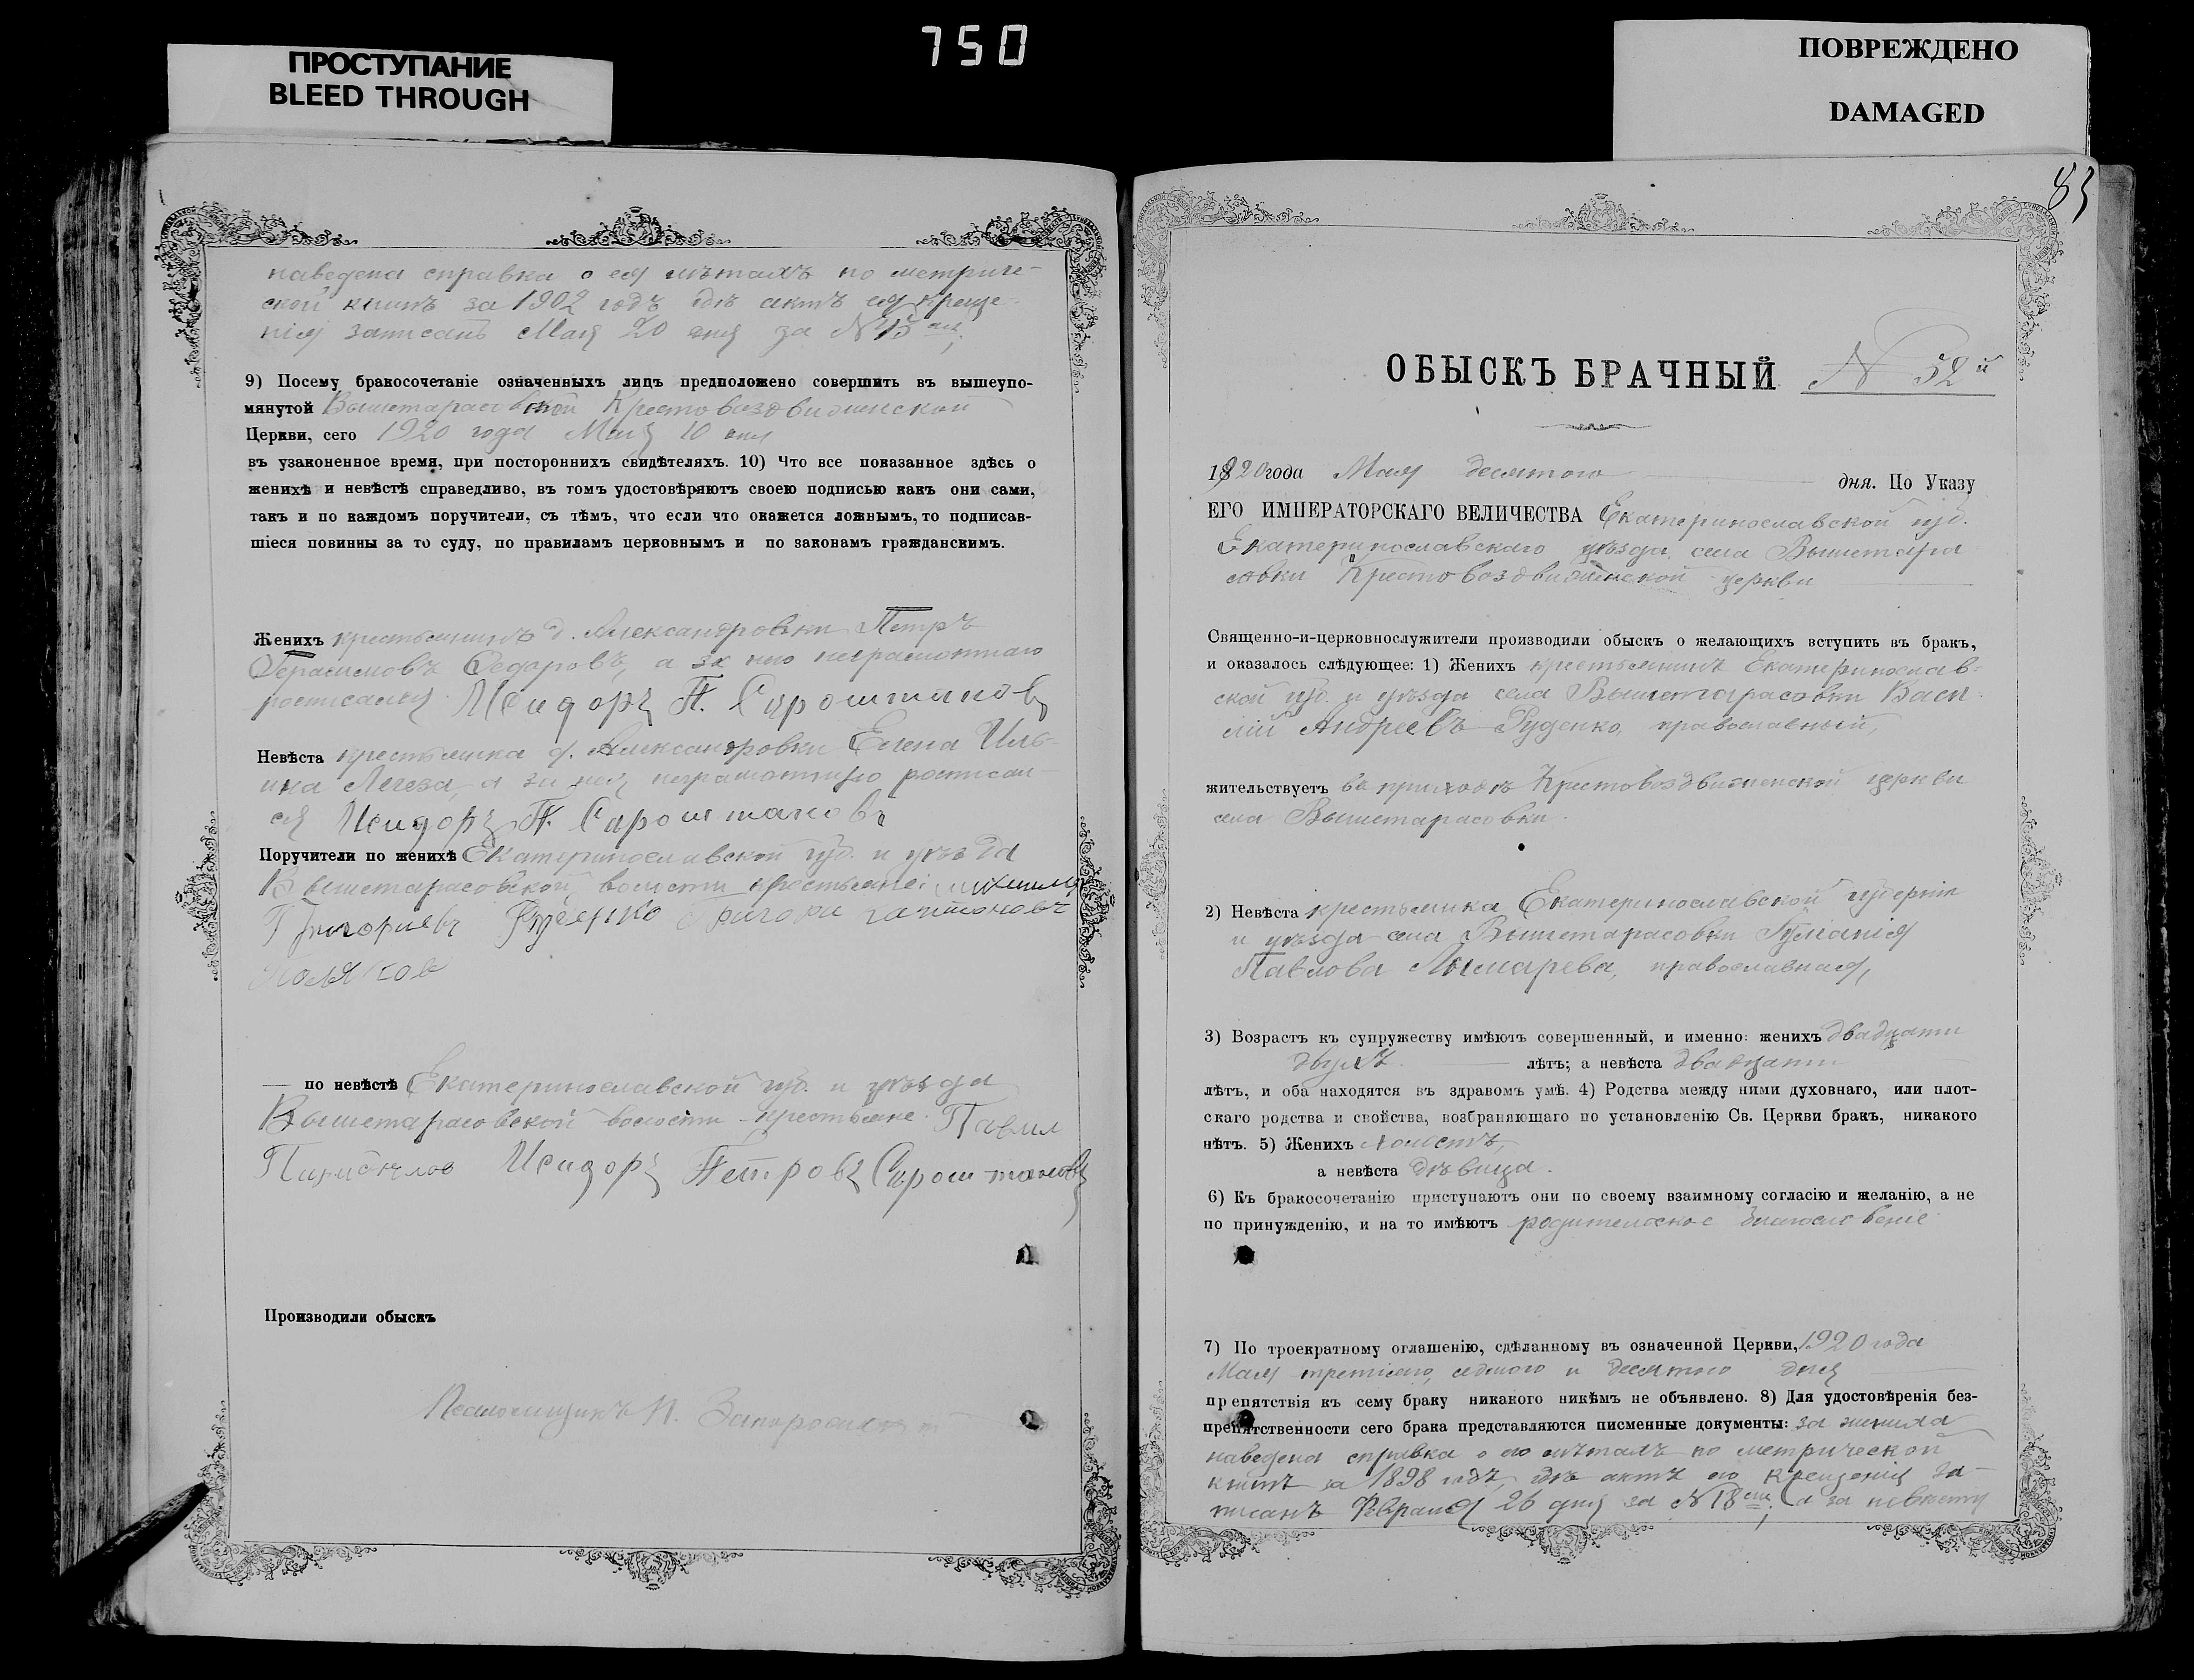 750
ПРОСТУПАНИЕ
BLEED THROUGH
ПОВРЕЖДЕНО
DAMAGED
наведена справка о ея лѣтахъ по метриче-
ской книгѣ за 1902 годъ гдѣ актъ ея креще-
нія записанъ Мая 20 дня за №
9) Посему бракосочетаніе означенныхъ лицъ предположено совершить въ вышеупо-
мянутой Вышетарасовской Крестовоздвиженской
Церкви, сего 1920 года Мая 10 дня
въ узаконенное время, при постороннихъ свидѣтеляхъ. 10) Что все показанное здѣсь о
женихѣ и невѣстѣ справедливо, въ томъ удостовѣряютъ своею подписью какъ они сами,
такъ и по каждомъ поручители, съ тѣмъ, что если что окажется ложнымъ, то подписав-
шіеся повинны за то суду, по правиламъ церковнымъ и по законамъ гражданскимъ.
Женихъ крестьянинъ д. Александровки Петръ
Герасимовъ Федоровъ, а за него неграмотнаго
росписался Исидоръ П. Сыроштановъ
Невѣста крестьянка д. Александровки Елена Иль-
ина а за нея неграмотную росписал-
ся Исидоръ П. Сыроштановъ
Поручители по женихѣ Екатеринославской губ. и уѣзда
Вышетарасовской волости крестьяне: Михаилъ
Григорьевъ Руденко Григори
Поляков
— по невѣстѣ Екатеринославской губ. и уѣзда
Вышетарасовской волости крестьяне Павелъ
Исидоръ Петровъ Сыроштановъ
Производили обыскъ
Псаломщикъ
83
ОБЫСКЪ БРАЧНЫЙ № 52й
1920 года Мая десятого дня. По Указу
ЕГО ИМПЕРАТОРСКАГО ВЕЛИЧЕСТВА Екатеринославской губ.
Екатеринославскаго уѣзда села Вышетара
совки Крестовоздвиженской церкви
Священно-и-церковнослужители производили обыскъ о желающихъ вступить въ бракъ,
и оказалось слѣдующее: 1) Женихъ крестьянинъ Екатеринослав-
ской губ. и уѣзда села Вышетарасовки Васи-
лій Андреевъ Руденко, православный,
жительствуетъ въ приходѣ Крестовоздвиженской церкви
села Вышетарасовки.
2) Невѣста крестьянка Екатеринославской губерніи
и уѣзда села Вышетарасовки
Павлова православная,
3) Возрастъ къ супружеству имѣютъ совершенный, и именно: женихъ двадцати
двухъ лѣтъ; а невѣста двадцати
лѣтъ, и оба находятся въ здравомъ умѣ. 4) Родства между ними духовнаго, или плот-
скаго родства и свойства, возбраняющаго по установленію Св. Церкви бракъ, никакого
нѣтъ. 5) Женихъ холостъ,
а невѣста дѣвица.
6) Къ бракосочетанію приступаютъ они по своему взаимному согласію и желанію, а не
по принужденію, и на то имѣютъ родительское благословеніе
7) По троекратному оглашенію, сдѣланному въ означенной Церкви, 1920 года
Мая третьяго, седьмого и десятаго дня
препятствія къ сему браку никакого никѣмъ не объявлено. 8) Для удостовѣренія без-
препятственности сего брака представляются писменные документы: за жениха
наведена справка о его лѣтахъ по метрической
книгѣ за 1898 годъ, гдѣ актъ его крещенія за-
писанъ Февраля 26 дня за № 18мъ; а за невѣсту